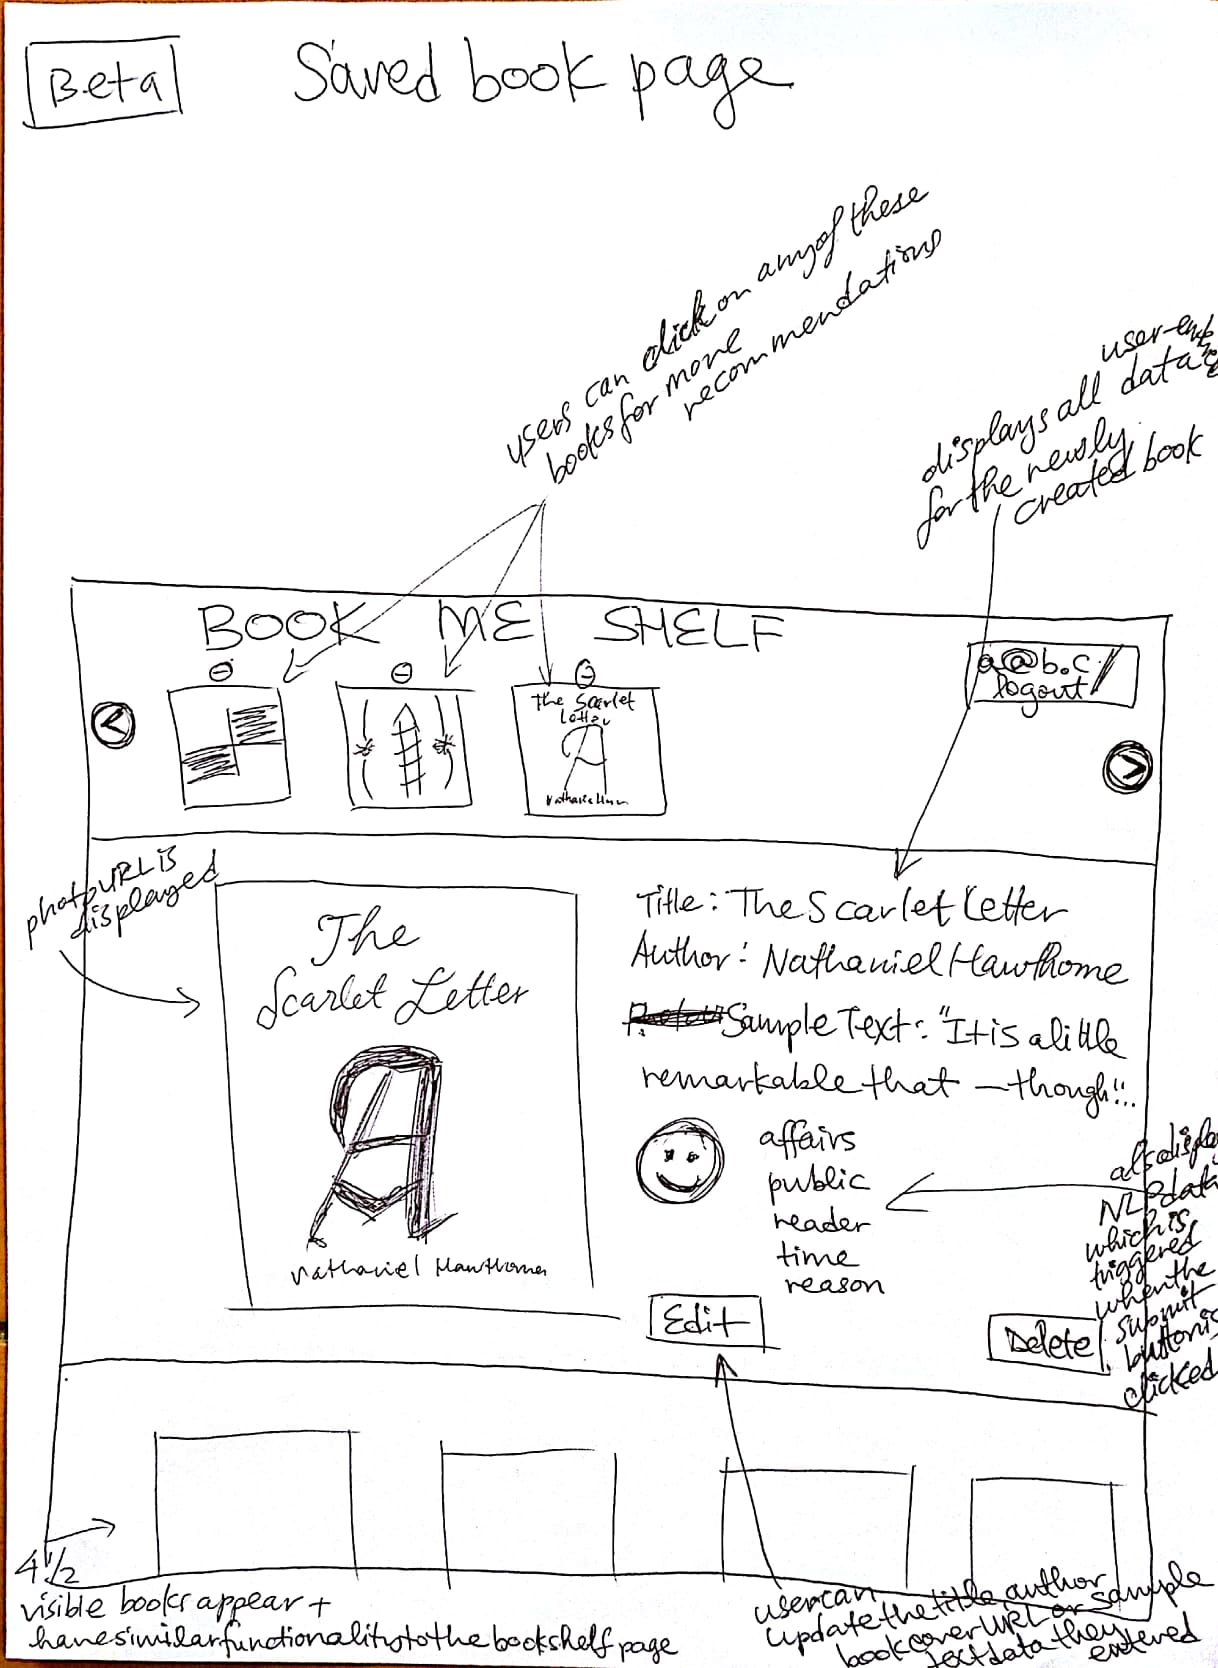 Beta
Saved book page
users can click on any of these
books for more
recommendations
user-ent
displays all data
for the newly
created book
BOOK ME SHELF
a@b.c/
logout
<
The Scarlet
Letter
A
>
photoURL is
displayed
The
Scarlet Letter
A
Nathaniel Hawthorne
Title: The Scarlet Letter
Author: Nathaniel Hawthorne
Sample Text: "It is a little
remarkable that — though!!..
affairs
public
reader
time
reason
also displa
NLP data
which is
triggered
when the
submit
button is
clicked
Edit
Delete
4 1/2
visible books appear +
have similar functionality to the bookshelf page
user can
update the title author
book cover URL or sample
text data they
entered